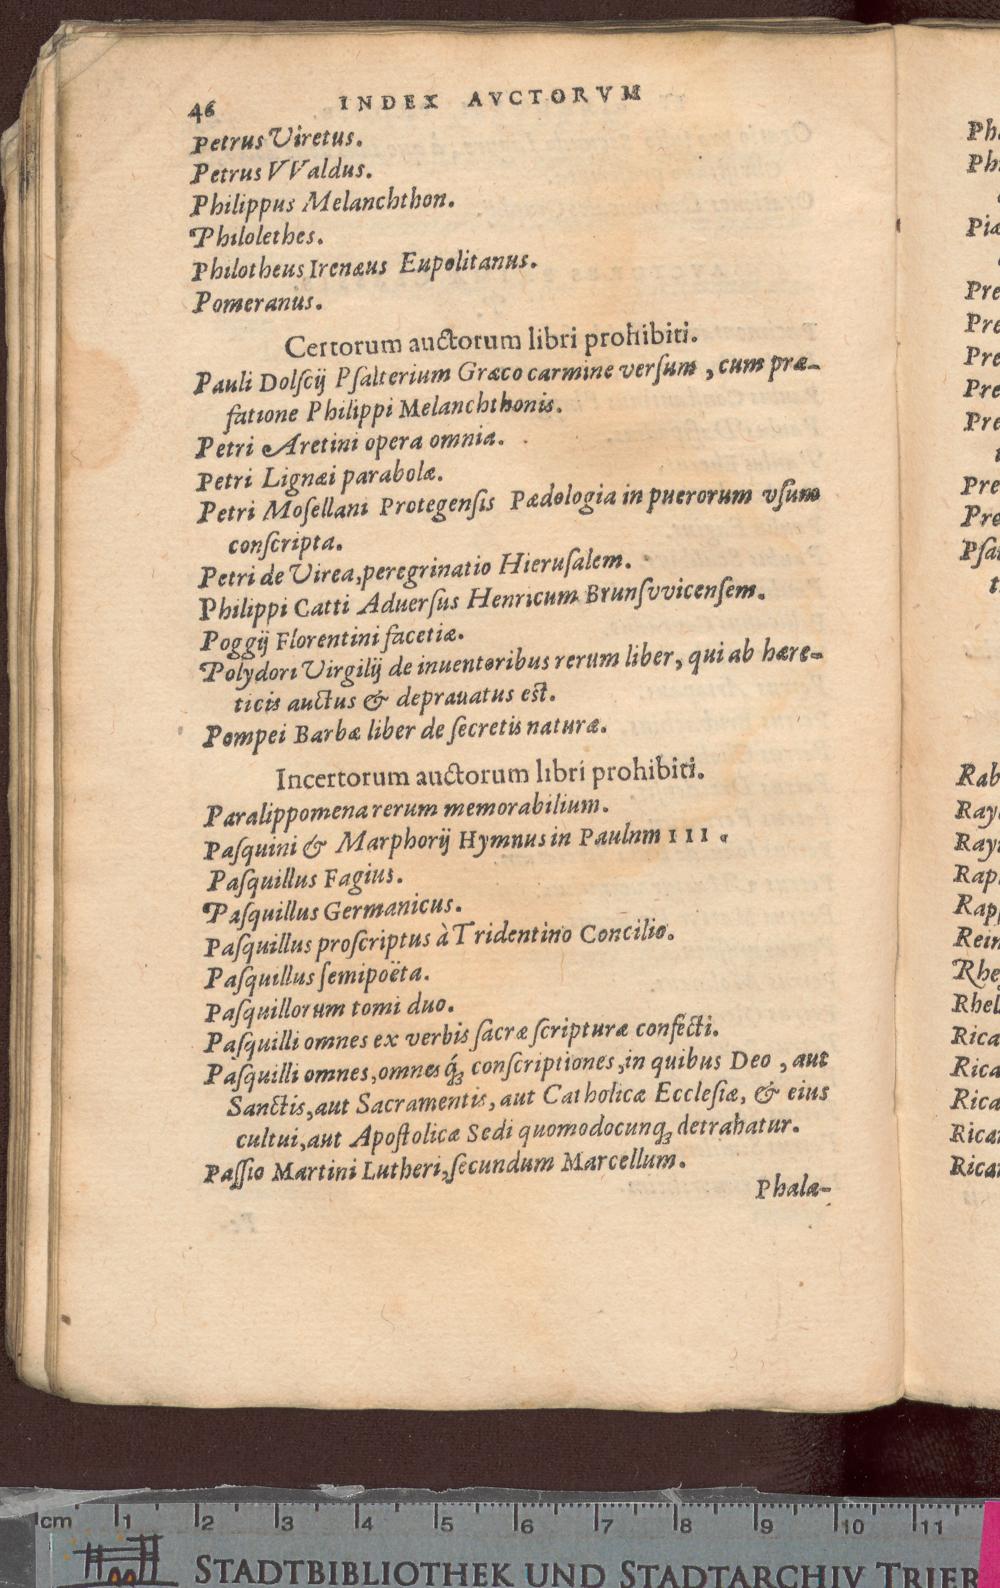 46 INDEX AVCTORVM
Petrus Viretus.
Petrus VValdus.
Philippus Melanchthon.
Philolethes.
Philotheus Irenæus Eupolitanus.
Pomeranus.
Certorum auctorum libri prohibiti.
Pauli Dolſcij Pſalterium Græco carmine verſum, cum præ-
fatione Philippi Melanchthonis.
Petri Aretini opera omnia.
Petri Lignæi parabolæ.
Petri Moſellani Protegenſis Pædologia in puerorum vſum
conſcripta.
Petri de Virea, peregrinatio Hieruſalem.
Philippi Catti Aduerſus Henricum Brunſvvicenſem.
Poggij Florentini facetiæ.
Polydori Virgilij de inuentoribus rerum liber, qui ab hære-
ticis auctus & deprauatus est.
Pompei Barbæ liber de ſecretis naturæ.
Incertorum auctorum libri prohibiti.
Paralippomena rerum memorabilium.
Paſquini & Marphorij Hymnus in Paulnm III.
Paſquillus Fagius.
Paſquillus Germanicus.
Paſquillus proſcriptus à Tridentino Concilio.
Paſquillus ſemipoëta.
Paſquillorum tomi duo.
Paſquilli omnes ex verbis ſacræ ſcripturæ confecti.
Paſquilli omnes, omnes q́ꝫ conſcriptiones, in quibus Deo, aut
Sanctis, aut Sacramentis, aut Catholicæ Eccleſiæ, & eius
cultui, aut Apoſtolicæ Sedi quomodocunqꝫ detrahatur.
Paſſio Martini Lutheri, ſecundum Marcellum.
Phalæ-
Ph
Ph
Piæ
Pre
Pre
Pre
Pre
Pre
Pre
Pre
Pſa
t
Rab
Ray
Ray
Rap
Rap
Rein
Rhe
Rhel
Rica
Rica
Rica
Rica
Rica
1cm 1 2 3 4 5 6 7 8 9 10 11
STADTBIBLIOTHEK UND STADTARCHIV TRIER